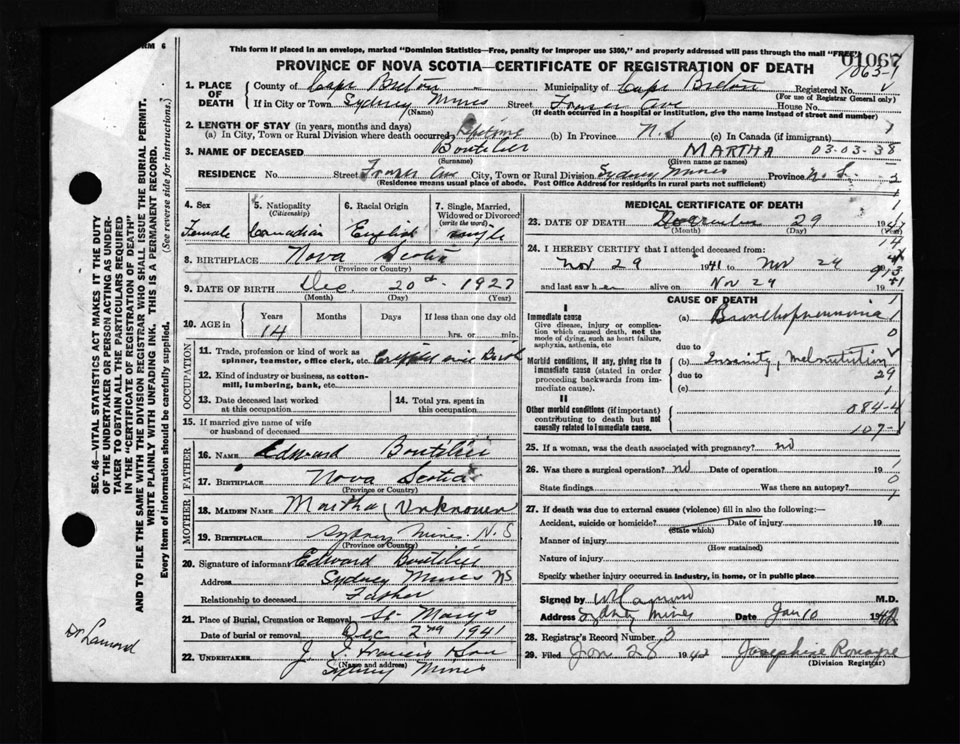 FORM 6
This form if placed in an envelope, marked "Dominion Statistics—Free, penalty for improper use $300," and properly addressed will pass through the mail "FREE"
01067
PROVINCE OF NOVA SCOTIA—CERTIFICATE OF REGISTRATION OF DEATH
1063-1
1. PLACE OF DEATH
County of Cape Breton Municipality of Cape Breton Registered No.
(For use of Registrar General only)
If in City or Town Sydney Mines Street Fraser Ave House No.
(Name) (If death occurred in a hospital or institution, give the name instead of street and number)
2. LENGTH OF STAY (in years, months and days)
(a) In City, Town or Rural Division where death occurred Lifetime (b) In Province N.S (c) In Canada (if immigrant)
3. NAME OF DECEASED Boutilier MARTHA 03-03-38
(Surname) (Given name or names)
RESIDENCE No. Street Fraser Ave City, Town or Rural Division Sydney Mines Province N.S.
(Residence means usual place of abode. Post Office Address for residents in rural parts not sufficient)
4. Sex Female
5. Nationality (Citizenship) Canadian
6. Racial Origin English
7. Single, Married, Widowed or Divorced (write the word) single
8. BIRTHPLACE Nova Scotia
(Province or Country)
9. DATE OF BIRTH Dec. 20th 1927
(Month) (Day) (Year)
10. AGE in Years Months Days If less than one day old
14 hrs. or min.
OCCUPATION
11. Trade, profession or kind of work as spinner, teamster, office clerk, etc.
12. Kind of industry or business, as cotton-mill, lumbering, bank, etc.
13. Date deceased last worked at this occupation
14. Total yrs. spent in this occupation
15. If married give name of wife or husband of deceased
FATHER
16. Name Edward Boutilier
17. Birthplace Nova Scotia
(Province or Country)
MOTHER
18. Maiden Name Martha (Unknown
19. Birthplace Sydney Mines. N.S
(Province or Country)
20. Signature of informant Edward Boutilier
Address Sydney Mines NS
Relationship to deceased Father
21. Place of Burial, Cremation or Removal St. Mary's
Date of burial or removal Dec 2nd 1941
22. Undertaker J. T. Francis & Son
(Name and address)
Sydney Mines
MEDICAL CERTIFICATE OF DEATH
23. DATE OF DEATH 29 1941
(Month) (Day)
24. I HEREBY CERTIFY that I attended deceased from:
Nov 29 1941 to Nov 29
and last saw her alive on Nov 29 1941
CAUSE OF DEATH
I
Immediate cause
Give disease, injury or complication which caused death, not the mode of dying, such as heart failure, asphyxia, asthenia, etc.
(a) Bronchopneumonia
due to
Morbid conditions, if any, giving rise to immediate cause (stated in order proceeding backwards from immediate cause).
(b) Insanity, Malnutrition
due to 29
(c)
II
Other morbid conditions (if important) contributing to death but not causally related to immediate cause.
084-4
107-1
25. If a woman, was the death associated with pregnancy? no
26. Was there a surgical operation? no Date of operation 19
State findings Was there an autopsy?
27. If death was due to external causes (violence) fill in also the following:—
Accident, suicide or homicide? Date of injury 19
(State which)
Manner of injury
(How sustained)
Nature of injury
Specify whether injury occurred in industry, in home, or in public place
Signed by M.D.
Address Sydney Mines Date Jan 10 1942
28. Registrar's Record Number 3
29. Filed Jan 28 1942 Josephine Ronayne
(Division Registrar)
SEC. 46—VITAL STATISTICS ACT MAKES IT THE DUTY
OF THE UNDERTAKER OR PERSON ACTING AS UNDERTAKER TO OBTAIN ALL THE PARTICULARS REQUIRED
IN THE "CERTIFICATE OF REGISTRATION OF DEATH"
AND TO FILE THE SAME WITH THE DIVISION REGISTRAR WHO SHALL ISSUE THE BURIAL PERMIT.
WRITE PLAINLY WITH UNFADING INK. THIS IS A PERMANENT RECORD.
Every item of information should be carefully supplied. (See reverse side for instructions.)
Dr Lamond